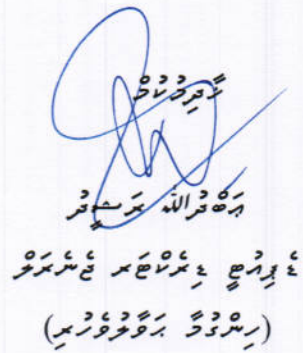 ޚާދިމުކުމް
ޢަބްދުﷲ ރަޝީދު
ޑެޕިއުޓީ ޑިރެކްޓަރ ޖެނެރަލް
(ހިންގުމާ ޙަވާލުވެހުރި)